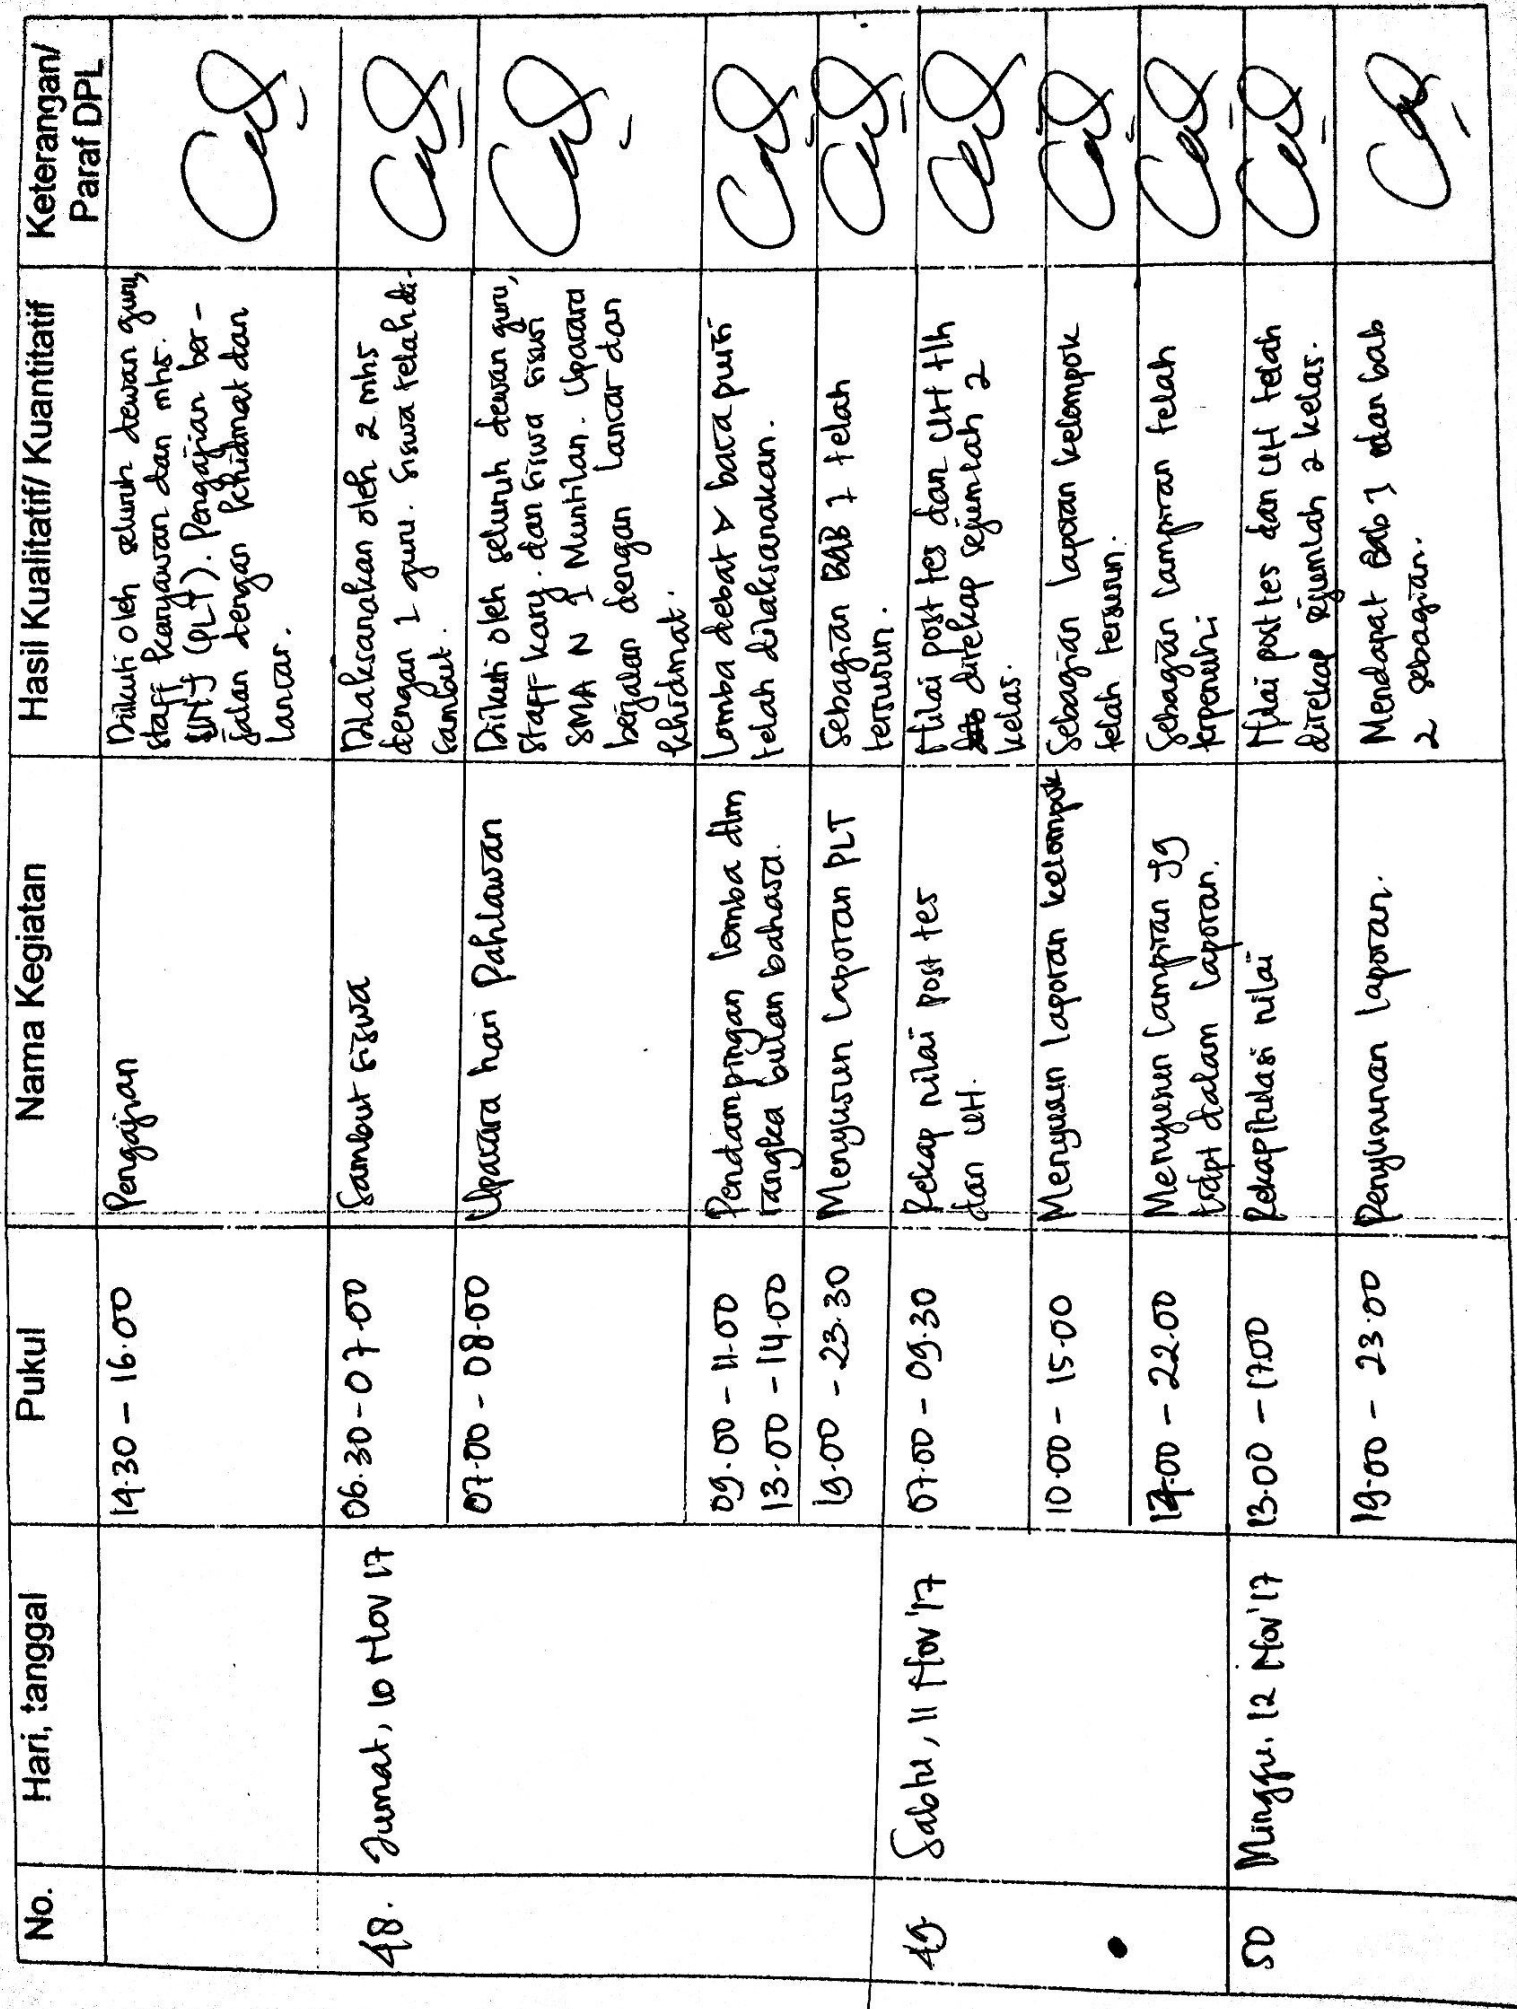 No.
Hari, tanggal
Pukul
Nama Kegiatan
Hasil Kualitatif/ Kuantitatif
Keterangan/
Paraf DPL
14.30 - 16.00
Pengajian
Diikuti oleh seluruh dewan guru,
staff karyawan dan mhs.
UNY (PLT). Pengajian ber-
jalan dengan khidmat dan
lancar.
48.
Jumat, 10 Nov 17
06.30 - 07.00
Sambut siswa
Dilaksanakan oleh 2 mhs
dengan 1 guru. Siswa telah di-
sambut.
07.00 - 08.00
Upacara hari Pahlawan
Diikuti oleh seluruh dewan guru,
staff kary. dan siswa siswi
SMA N 1 Muntilan. Upacara
berjalan dengan lancar dan
khidmat.
09.00 - 11.00
13.00 - 14.00
Pendampingan lomba dlm
rangka bulan bahasa.
Lomba debat & baca puisi
telah dilaksanakan.
19.00 - 23.30
Menyusun Laporan PLT
Sebagian BAB 1 telah
tersusun.
49
Sabtu, 11 Nov '17
07.00 - 09.30
Rekap nilai post tes
dan UH.
Nilai post tes dan UH tlh
direkap sejumlah 2
kelas.
10.00 - 15.00
Menyusun laporan kelompok
Sebagian laporan kelompok
telah tersusun.
17.00 - 22.00
Menyusun lampiran yg
tdpt dalam laporan.
Sebagian lampiran telah
terpenuhi
50
Minggu, 12 Nov '17
13.00 - 17.00
Rekapitulasi nilai
Nilai post tes dan UH telah
direkap sejumlah 2 kelas.
19.00 - 23.00
Penyusunan laporan.
Mendapat Bab 1 dan bab
2 sebagian.